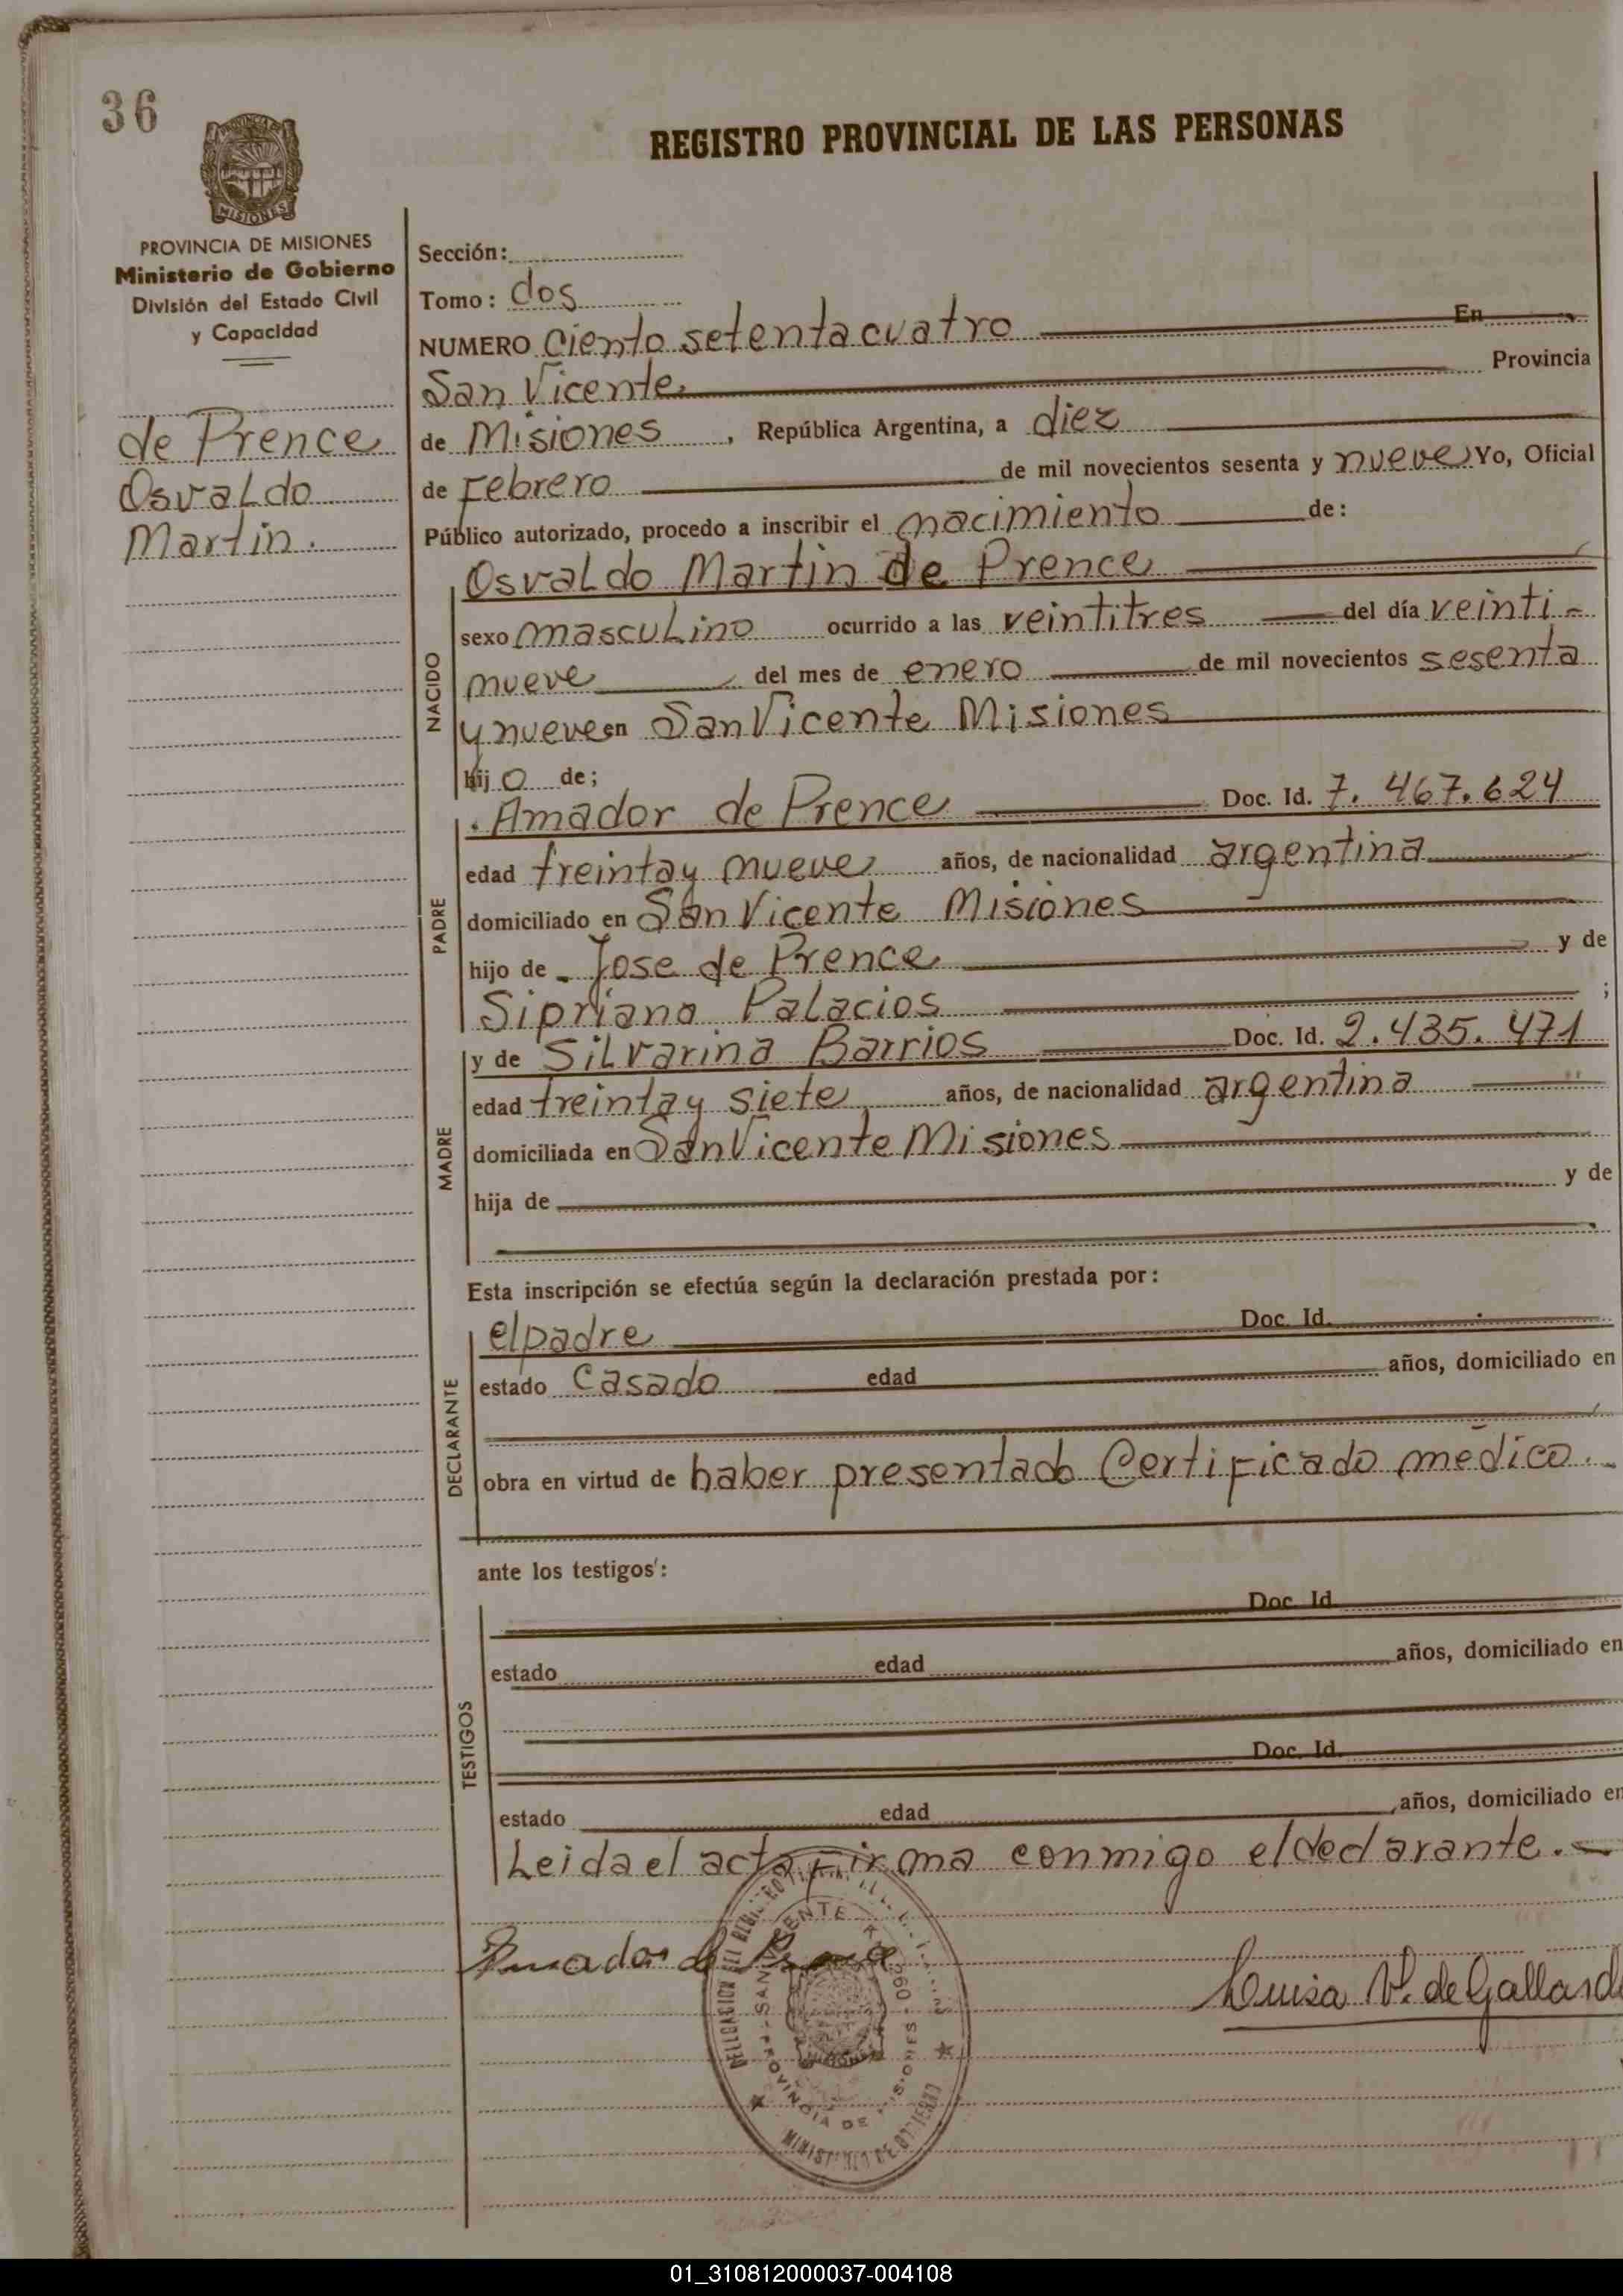 36
REGISTRO PROVINCIAL DE LAS PERSONAS
PROVINCIA DE
MISIONES
PROVINCIA DE MISIONES
Ministerio de Gobierno
División del Estado Civil
y Capacidad
de Prence
Osvaldo
Martin.
Sección:
Tomo: dos
NUMERO Ciento setenta cuatro En
San Vicente Provincia
de Misiones, República Argentina, a diez
de Febrero de mil novecientos sesenta y nueve Yo, Oficial
Público autorizado, procedo a inscribir el nacimiento de:
NACIDO
Osvaldo Martin de Prence
sexo masculino ocurrido a las veintitres del día veinti-
nueve del mes de enero de mil novecientos sesenta
y nueve en San Vicente Misiones
hijo de;
PADRE
Amador de Prence Doc. Id. 7.467.624
edad treinta y nueve años, de nacionalidad argentina
domiciliado en San Vicente Misiones
hijo de Jose de Prence y de
Sipriana Palacios ;
MADRE
y de Silvarina Barrios Doc. Id. 2.435.471
edad treinta y siete años, de nacionalidad argentina
domiciliada en San Vicente Misiones
hija de y de
Esta inscripción se efectúa según la declaración prestada por:
DECLARANTE
el padre Doc. Id.
estado Casado edad años, domiciliado en
obra en virtud de haber presentado Certificado médico.
ante los testigos:
TESTIGOS
Doc. Id
estado edad años, domiciliado en
Doc. Id.
estado edad años, domiciliado en
Leida el acta firma conmigo el declarante.
Amador de Prence
Luisa V. de Gallardo
SAN VICENTE
PROVINCIA DE MISIONES
01_310812000037-004108